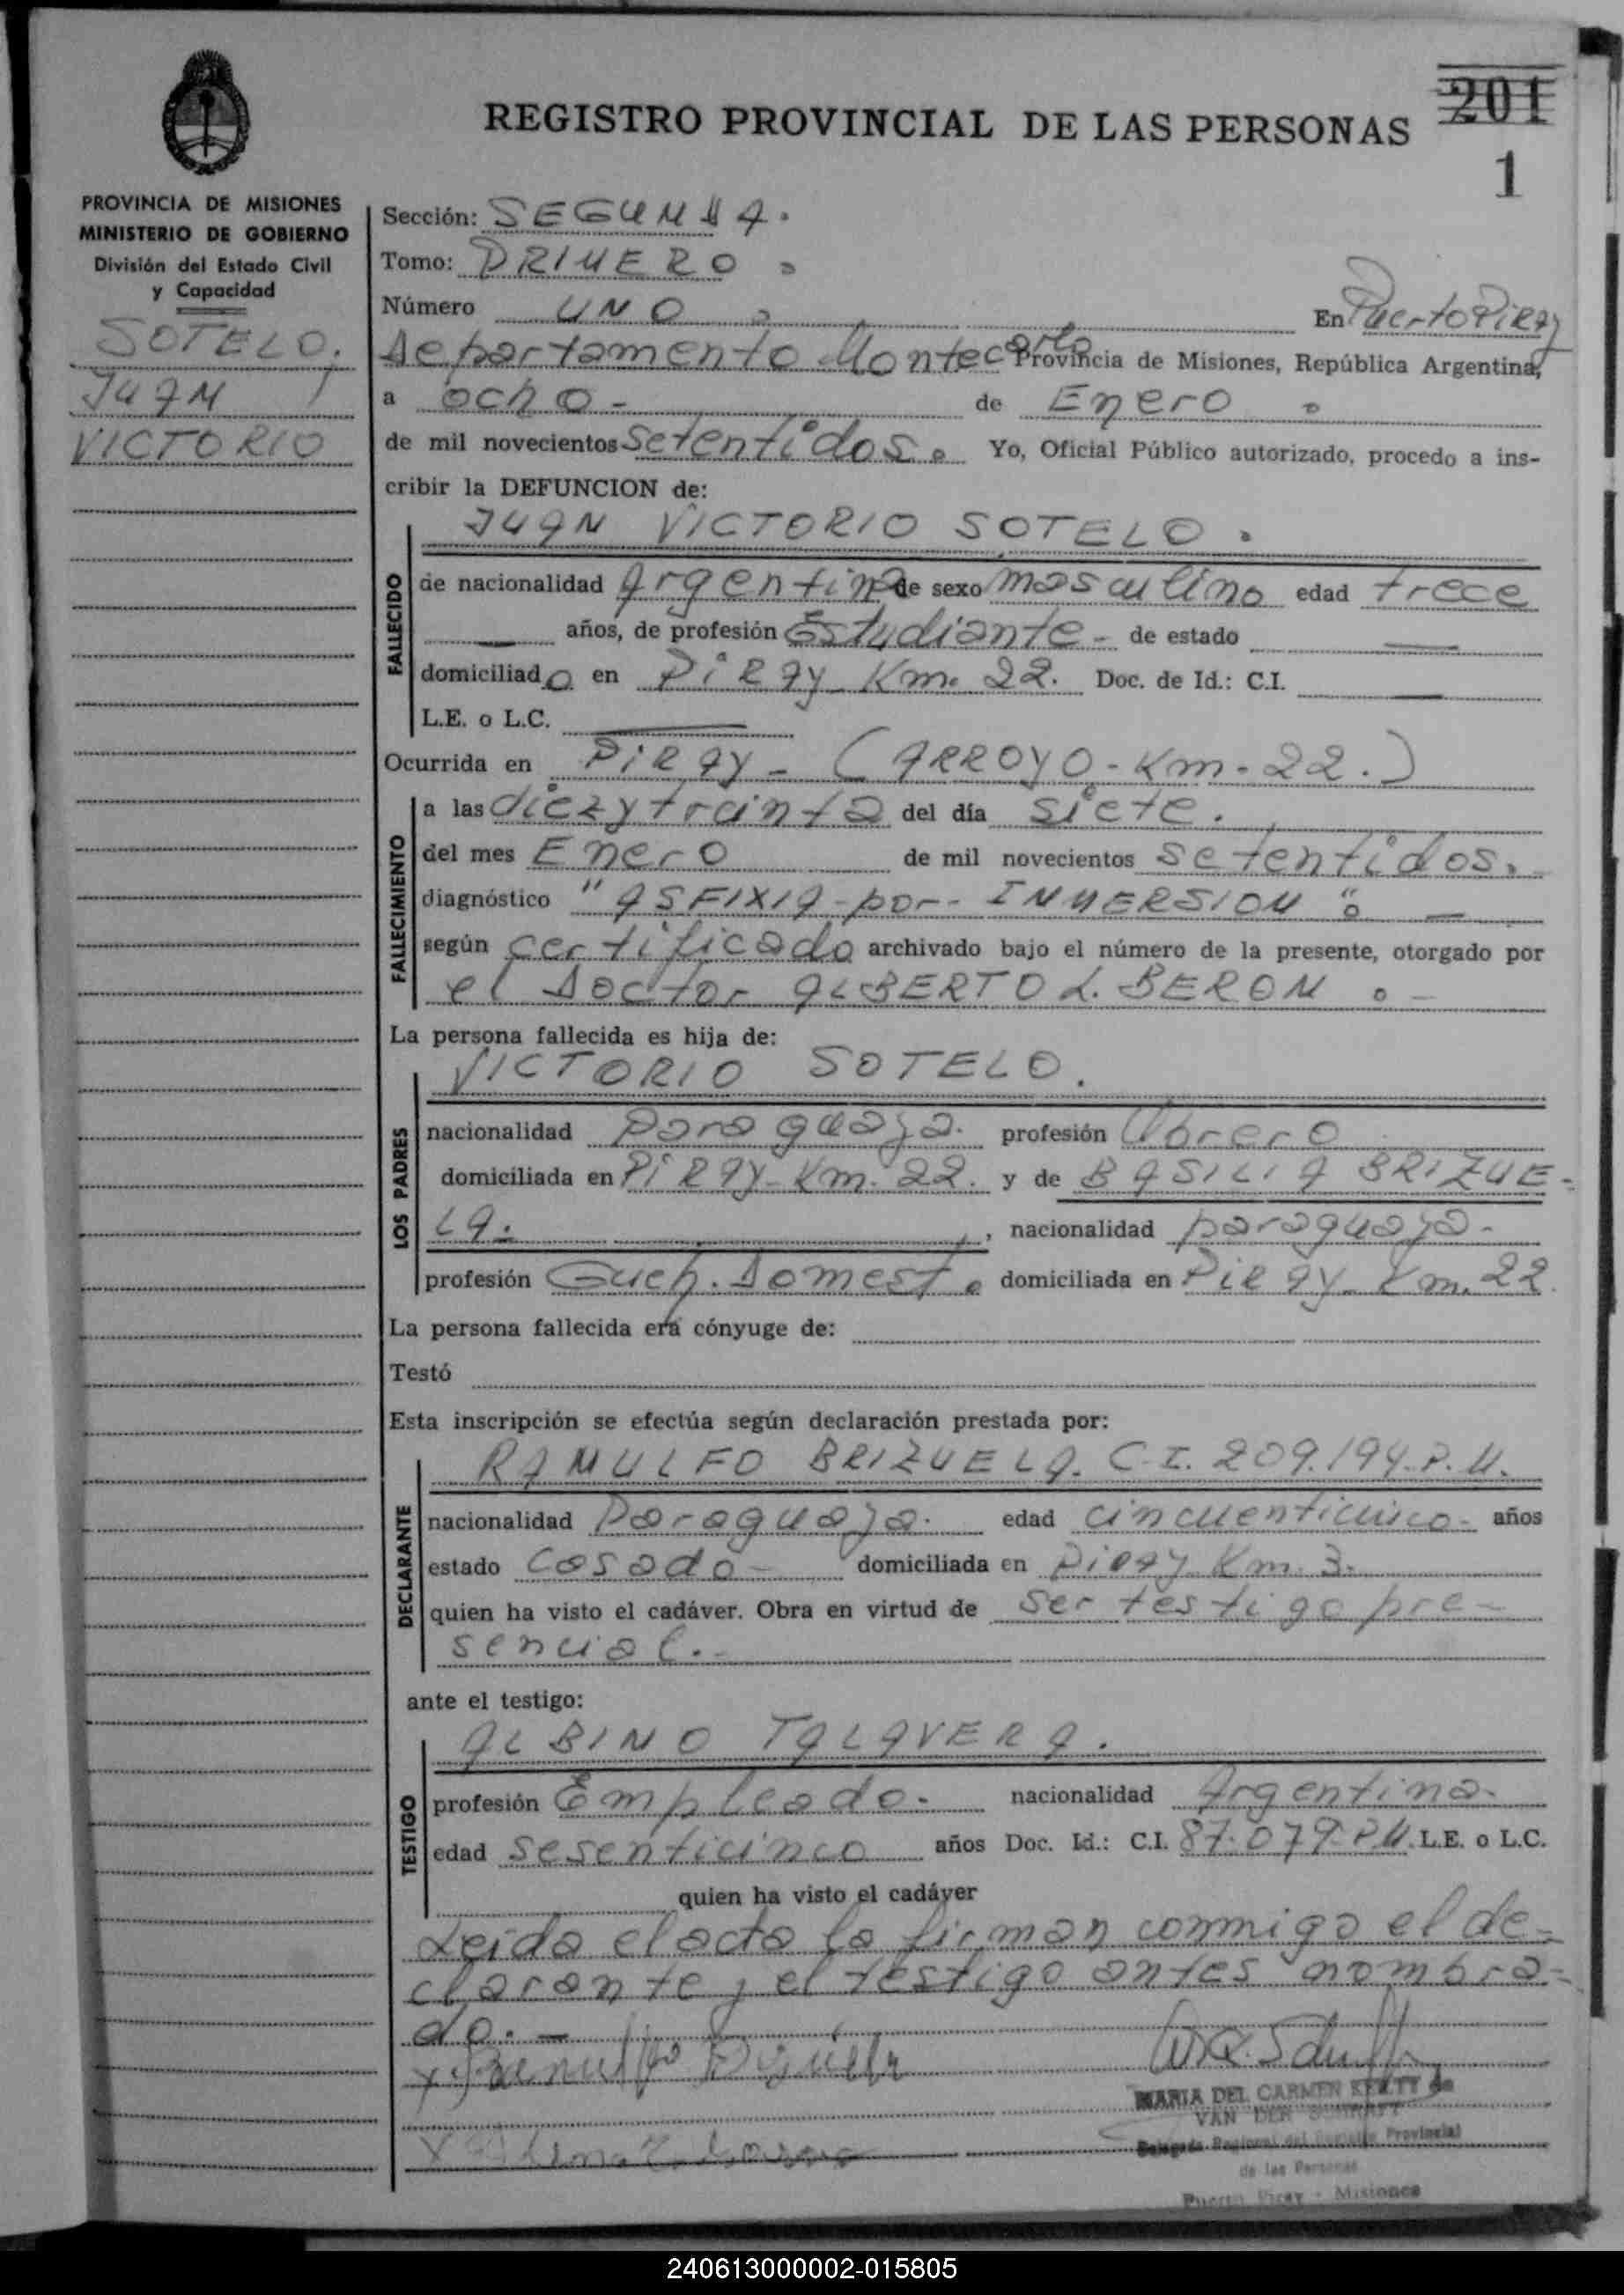 REGISTRO PROVINCIAL DE LAS PERSONAS
201
1
PROVINCIA DE MISIONES
MINISTERIO DE GOBIERNO
División del Estado Civil
y Capacidad
SOTELO.
JUAN
VICTORIO
Sección: SEGUNDA.
Tomo: PRIMERO.
Número UNO. En Puerto Piray
Departamento Montecarlo Provincia de Misiones, República Argentina,
a ocho - de Enero.
de mil novecientos setentidos. Yo, Oficial Público autorizado, procedo a ins-
cribir la DEFUNCION de:
JUAN VICTORIO SOTELO.
FALLECIDO
de nacionalidad Argentina de sexo masculino edad trece
— años, de profesión Estudiante - de estado —
domiciliado en PiRAy Km. 22. Doc. de Id.: C.I. —
L.E. o L.C. —
Ocurrida en PiRAy - (ARROYO - Km - 22.)
FALLECIMIENTO
a las diez y treinta del día siete.
del mes Enero de mil novecientos setentidos.
diagnóstico "ASFIXIA - por - INMERSION". —
según certificado archivado bajo el número de la presente, otorgado por
el Doctor ALBERTO L. BERON. -
La persona fallecida es hija de:
VICTORIO SOTELO.
LOS PADRES
nacionalidad Paraguaya. profesión Obrero
domiciliada en PiRAy - Km. 22. y de BASILIA BRIZUE-
LA. , nacionalidad paraguaya -
profesión Queh. Domest. domiciliada en PiRAy - Km. 22
La persona fallecida era cónyuge de:
Testó
Esta inscripción se efectúa según declaración prestada por:
RAMULFO BRIZUELA. C.I. 209.194.P.M.
DECLARANTE
nacionalidad Paraguaya. edad cincuenticinco - años
estado Casado - domiciliada en Piray Km. 3.
quien ha visto el cadáver. Obra en virtud de ser testigo pre-
sencial. -
ante el testigo:
ALBINO TALAVERA.
TESTIGO
profesión Empleado. nacionalidad Argentina.
edad sesenticinco años Doc. Id.: C.I. 87.079.P.M. L.E. o L.C.
quien ha visto el cadáver
Leida el acta la firman conmigo el de-
clarante y el testigo antes nombra-
do. -
MARIA DEL CARMEN de
VAN DER
Delegada Regional del Registro Provincial
de las Personas
Puerto Piray - Misiones
240613000002-015805